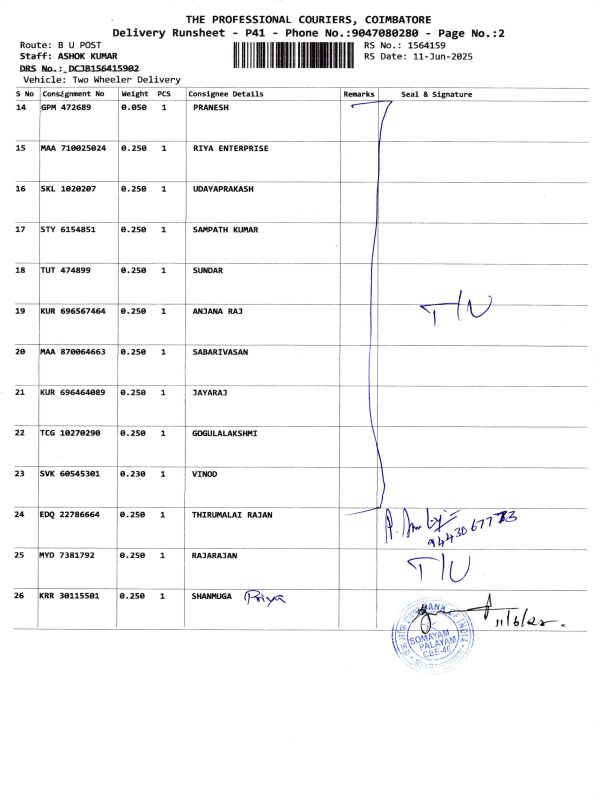 THE PROFESSIONAL COURIERS, COIMBATORE
Delivery Runsheet - P41 - Phone No.:9047080280 - Page No.:2
Route: B U POST RS No.: 1564159
Staff: ASHOK KUMAR RS Date: 11-Jun-2025
DRS No.: DCJB156415902
Vehicle: Two Wheeler Delivery
S No Consignment No Weight PCS Consignee Details Remarks Seal & Signature
14 GPM 472689 0.050 1 PRANESH
15 MAA 710025024 0.250 1 RIYA ENTERPRISE
16 SKL 1020207 0.250 1 UDAYAPRAKASH
17 STY 6154851 0.250 1 SAMPATH KUMAR
18 TUT 474899 0.250 1 SUNDAR
19 KUR 696567464 0.250 1 ANJANA RAJ T/U
20 MAA 870064663 0.250 1 SABARIVASAN
21 KUR 696464089 0.250 1 JAYARAJ
22 TCG 10270290 0.250 1 GOGULALAKSHMI
23 SVK 60545301 0.230 1 VINOD
24 EDQ 22786664 0.250 1 THIRUMALAI RAJAN
25 MYD 7381792 0.250 1 RAJARAJAN T/U
26 KRR 30115501 0.250 1 SHANMUGA Priya
SOMAYAM
PALAYAM
CBE-46